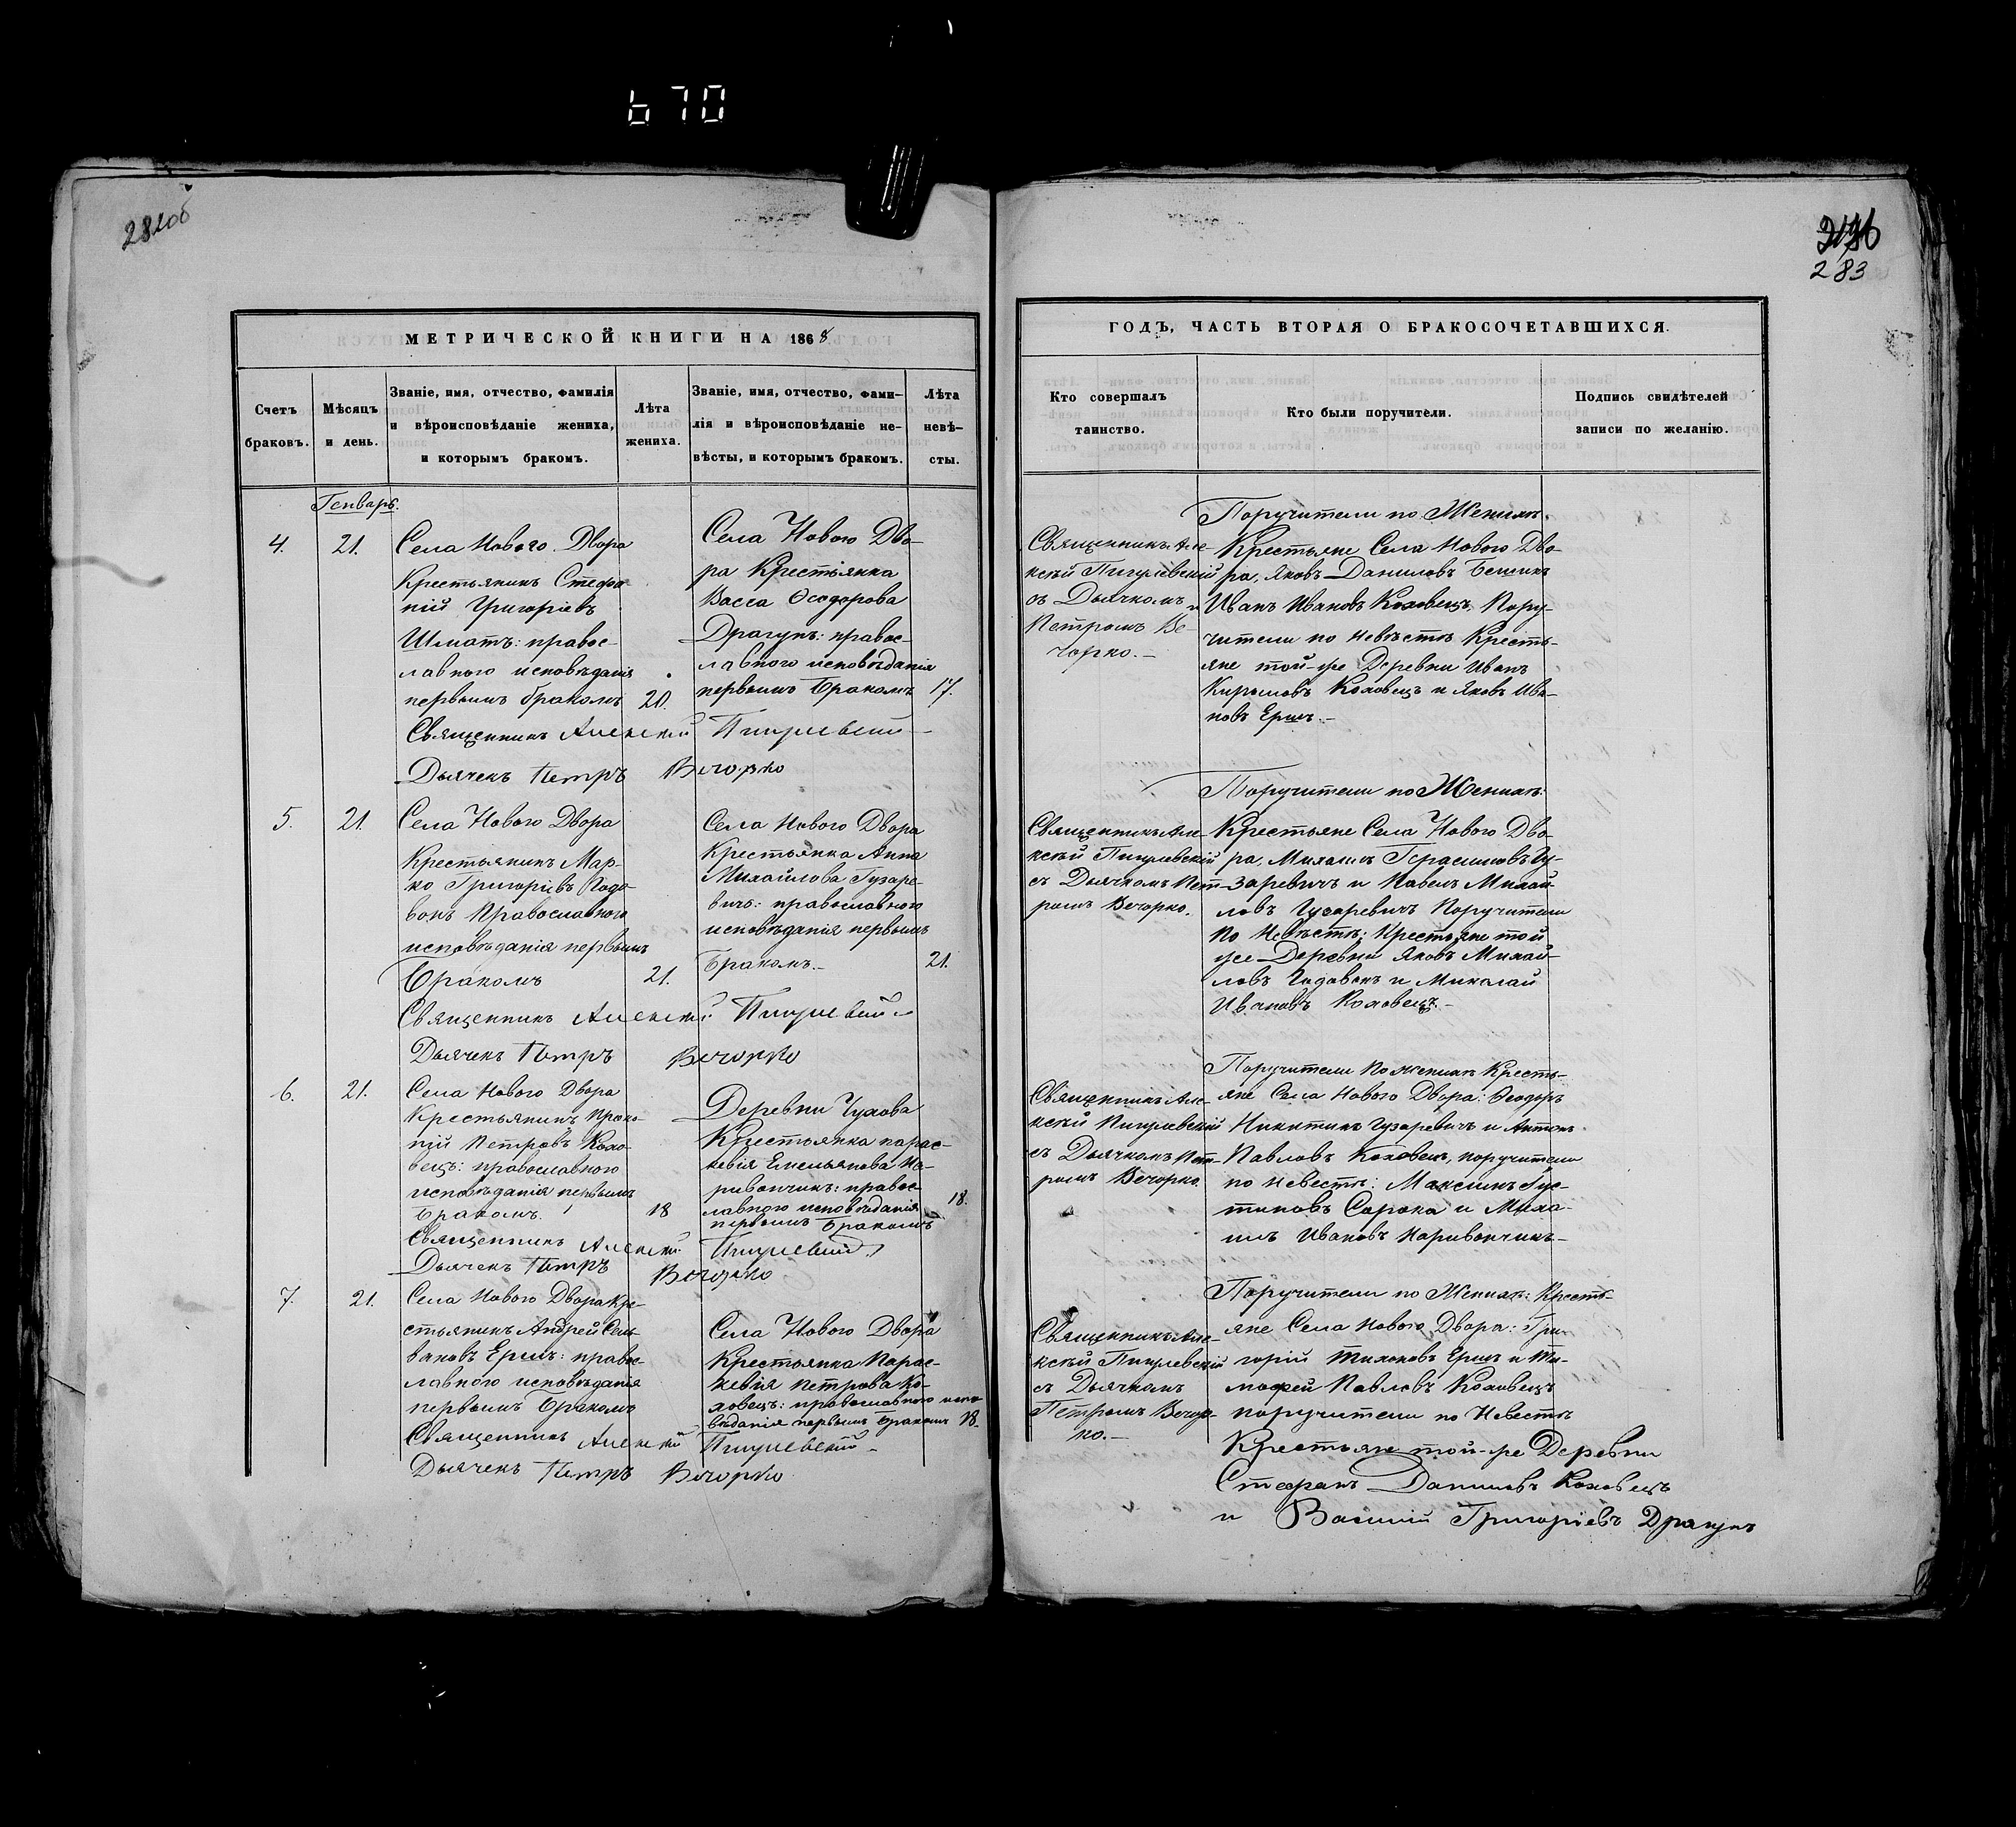 670
282об
283
МЕТРИЧЕСКОЙ КНИГИ НА 1868
Счетъ браковъ.
Мѣсяцъ и день.
Званіе, имя, отчество, фамилія и вѣроисповѣданіе жениха, и которымъ бракомъ.
Лѣта жениха.
Званіе, имя, отчество, фами-
лія и вѣроисповѣданіе не-
вѣсты, и которымъ бракомъ.
Лѣта невѣ-
сты.
Генварь.
4.
21.
Села Нового Двора
Крестьянинъ Стефа
ній Григоріевъ
Шматъ: правос-
лавного исповѣданія
первымъ бракомъ
20.
Села Нового Дво-
ра Крестіянка
Васса Ѳеодорова
Драгунъ: правос-
лавного исповѣданія
первымъ Бракомъ
17.
Священникъ Алексѣй Пигулевскій
Дьячекъ Петръ Вечорко
5.
21.
Села Нового Двора
Крестьянинъ Мар-
ко Григоріевъ Годо-
вонъ Православного
исповѣданія первымъ
Бракомъ
21.
Села Нового Двора
Крестьянка Анна
Михайлова Гузаре-
вичъ: православного
исповѣданія первымъ
Бракомъ.
21.
Священникъ Алексѣй Пигулевскій
Дьячекъ Петръ Вечорко
6.
21.
Села Нового Двора
Крестьянинъ Проко
пій Петровъ Кохо-
вецъ: православного
исповѣданія первымъ
Бракомъ.
18
Деревни Чухова
Крестьянка парас-
кевія Емельянова На-
ривончикъ: правос-
лавного исповѣданія
первымъ Бракомъ
18.
Священникъ Алексѣй Пигулевскій
Дьячекъ Петръ Вечорко
7.
21.
Села Нового Двора Кре-
стьянинъ Андрей Сель-
вановъ Ершъ: правос-
лавного исповѣданія
первымъ Бракомъ
Села Нового Двора
Крестьянка Парас-
кевія Петрова Ко-
ховецъ: православного испо
вѣданія первымъ Бракомъ
18.
Священникъ Алексѣй Пигулевскій
Дьячекъ Петръ Вечорко
ГОДЪ, ЧАСТЬ ВТОРАЯ О БРАКОСОЧЕТАВШИХСЯ.
Кто совершалъ таинство.
Кто были поручители.
Подпись свидѣтелей записи по желанію.
Священникъ Але-
ксѣй Пигулевскій
съ Дьячкомъ
Петромъ Ве-
чорко.
Поручители по Женихѣ.
Крестьяне Села Нового Дво-
ра, Яковъ Даниловъ
Иванъ Ивановъ Коховецъ, Пору-
чители по невѣстѣ Кресть-
яне той-же Деревни Иванъ
Кириловъ Коховецъ и Яковъ Ива-
новъ Ершъ.
Священникъ Але-
ксѣй Пигулевскій
съ Дьячкомъ Пет-
ромъ Вечорко.
Поручители по Женихѣ:
Крестьяне Села Нового Дво-
ра, Михаилъ Герасимовъ Гу-
заревичъ и Павелъ Михай-
ловъ Гузаревичъ Поручители
По Невѣстѣ; Крестьяне той
же Деревни Яковъ Михай-
ловъ Годовонъ и Миколай
Ивановъ Коховецъ.
Священникъ Але-
ксѣй Пигулевскій
съ Дьячкомъ Пет-
ромъ Вечорко
Поручители По женихѣ Кресть-
яне Села Нового Двора: Ѳеодоръ
Никитинъ Гузаревичъ и Антонъ
Павловъ Коховецъ, поручители
по невестѣ: Максимъ Гус-
тиновъ Сорока и Миха-
илъ Ивановъ Наривончикъ
Священникъ Але-
ксѣй Пигулевскій
съ Дьячкомъ
Петромъ Вечор-
ко.
Поручители по Женихѣ: Кресть-
яне Села Нового Двора: Гри-
горій Тихоновъ Ершъ и Ти-
мофей Павловъ Коховецъ
поручители по Невестѣ
Крестьяне той-же Деревни
Стефанъ Даниловъ Коховецъ
и Василій Григоріевъ Драгунъ